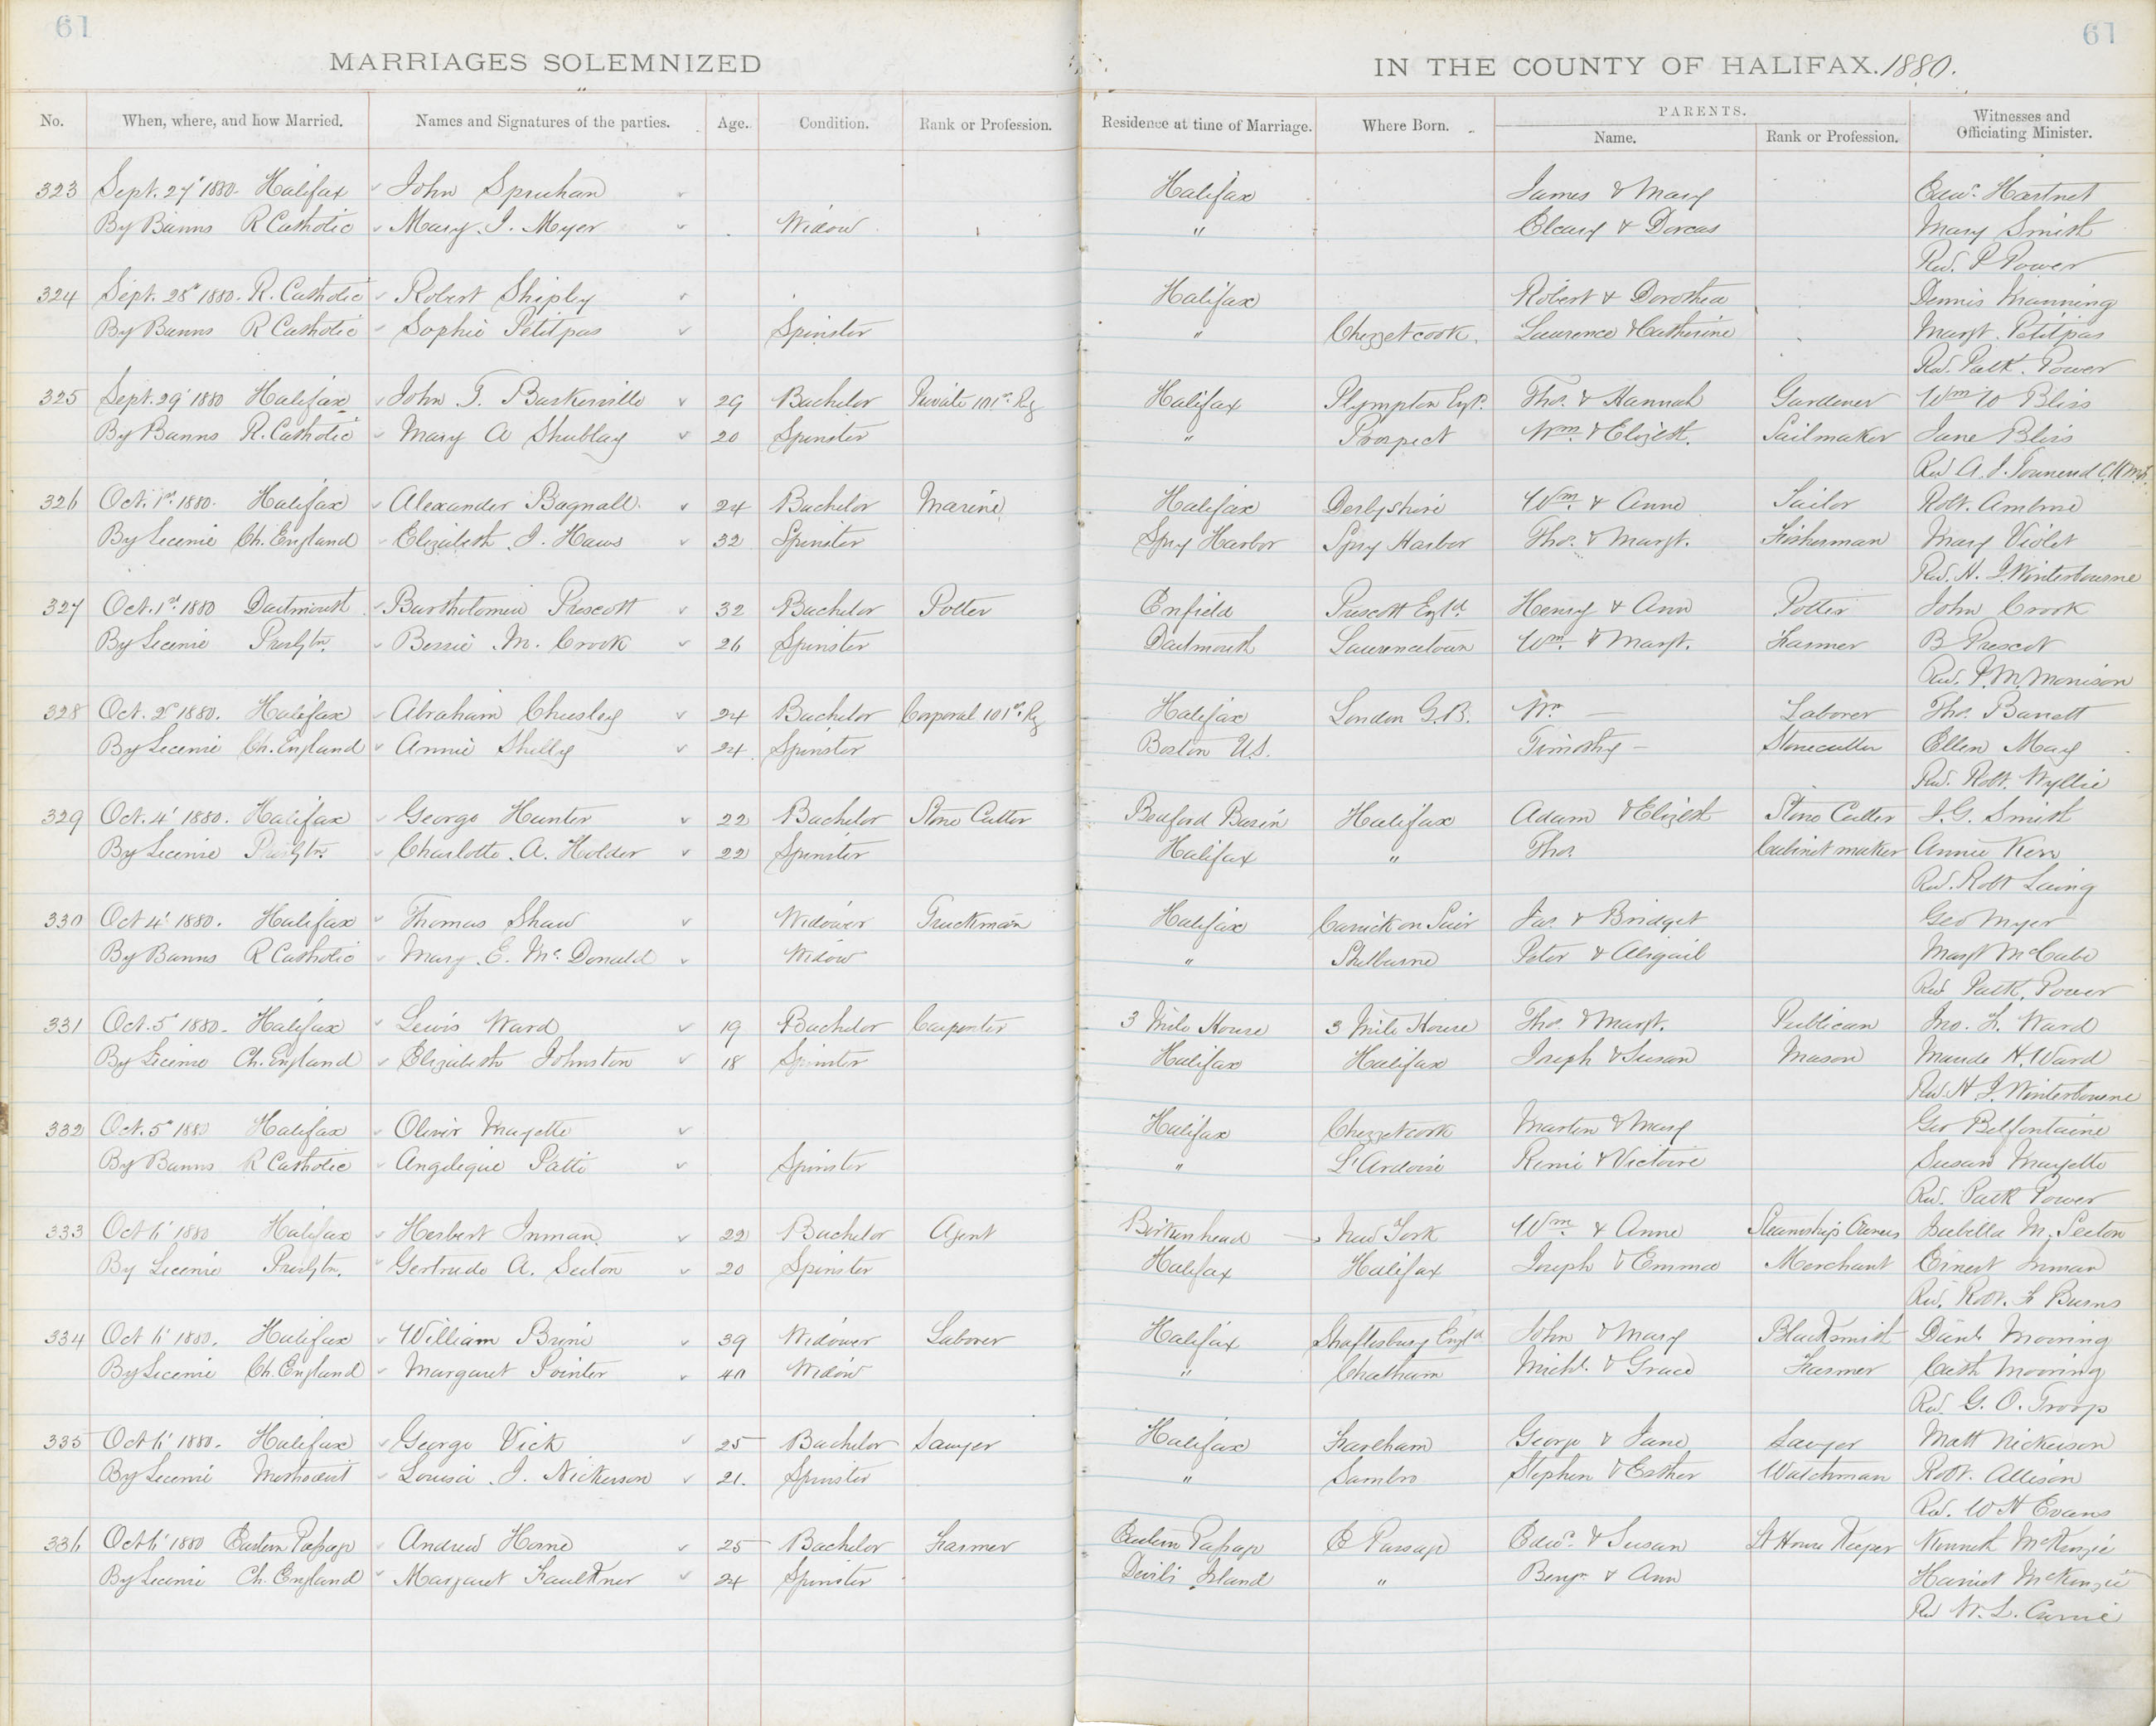 61 61
MARRIAGES SOLEMNIZED IN THE COUNTY OF HALIFAX. 1880.
No. When, where, and how Married. Names and Signatures of the parties. Age. Condition. Rank or Profession. Residence at time of Marriage. Where Born. PARENTS. Witnesses and Officiating Minister.
Name. Rank or Profession.
323 Sept. 27' 1880. Halifax John Spruhan Halifax James & Mary Edwd. Hartnet
By Banns R Catholic Mary J. Myer Widow " Cleary & Dorcas Mary Smith
Rev. P Power
324 Sept. 28' 1880. R. Catholic Robert Shipley Halifax Robert & Dorothea Dennis Manning
By Banns R Catholic Sophie Petitpas Spinster " Chezzetcook Laurence & Catherine Margt. Petitpas
Rev. Patk. Power
325 Sept. 29' 1880 Halifax John T. Baskerville 29 Bachelor Private 101st Rg Halifax Plympton Engd. Thos. & Hannah Gardener Wm W Bliss
By Banns R. Catholic Mary A Shublay 20 Spinster " Prospect Wm. & Elizbth. Sailmaker Jane Bliss
Rev A. J. Townend
326 Oct. 1st 1880. Halifax Alexander Bagnall 24 Bachelor Marine Halifax Derbyshire Wm. & Anne Sailor Robt. Ambrose
By License Ch. England Elizabeth J. Haws 32 Spinster Spry Harbor Spry Harbor Thos. & Margt. Fisherman Mary Violet
Rev. H. J. Winterbourne
327 Oct. 1st 1880 Dartmouth Bartholomew Prescott 32 Bachelor Potter Enfield Prescott Engd. Henry & Ann Potter John Crook
By License Presbytn. Bessie M. Crook 26 Spinster Dartmouth Laurencetown Wm. & Margt. Farmer B Prescot
Rev. P. M. Morrison
328 Oct. 2d 1880. Halifax Abraham Chesley 24 Bachelor Corporal 101st Rg Halifax London G.B. Wm — Laborer Thos. Barrett
By License Ch. England Annie Shelly 24 Spinster Boston U.S. Timothy — Stonecutter Ellen May
Rev. Robt. Wyllie
329 Oct. 4' 1880. Halifax George Hunter 22 Bachelor Stone Cutter Bedford Basin Halifax Adam & Elizbth Stone Cutter J. G. Smith
By License Presbytn. Charlotte A. Holder 22 Spinster Halifax " Thos. Cabinet maker Annie Kerr
Rev. Robt Laing
330 Oct 4' 1880. Halifax Thomas Shaw Widower Truckman Halifax Carrick on Suir Jas. & Bridget Geo Myer
By Banns R Catholic Mary E. Mc Donald Widow " Shelburne Peter & Abigail Margt McCabe
Rev Patk. Power
331 Oct. 5' 1880. Halifax Lewis Ward 19 Bachelor Carpenter 3 Mile House 3 Mile House Thos. & Margt. Publican Jno. F. Ward
By License Ch. England Elizabeth Johnston 18 Spinster Halifax Halifax Joseph & Susan Mason Maude H. Ward
Rev. H J. Winterbourne
332 Oct. 5' 1880 Halifax Olivir Mayette Halifax Chezzetcook Martin & Mary Geo Belfontaine
By Banns R Catholic Angelique Patti Spinster " L'Ardoise Remi & Victoire Susan Mayette
Rev. Patk Power
333 Oct 6' 1880 Halifax Herbert Inman 22 Bachelor Agent Birkenhead New York Wm. & Anne Steamship Owner Isabella M. Seeton
By License Presbytn. Gertrude A. Seeton 20 Spinster Halifax Halifax Joseph & Emma Merchant Ernest Inman
Rev. Robt. F Burns
334 Oct 6' 1880. Halifax William Brine 39 Widower Laborer Halifax Shaftesbury Engld John & Mary Blacksmith Danl. Mooring
By License Ch. England Margaret Pointer 40 Widow " Chatham Michl. & Grace Farmer Cath Mooring
Rev. G. O. Troop
335 Oct 6' 1880. Halifax George Vick 25 Bachelor Sawyer Halifax Fareham George & Jane Sawyer Matt Nickerson
By License Methodist Louisa J. Nickerson 21. Spinster " Sambro Stephen & Esther Watchman Robt. Allison
Rev. W H Evans
336 Oct 6' 1880 Eastern Passage Andrew Horne 25 Bachelor Farmer Eastern Passage E Passage Edwd. & Susan Lt House Keeper Kenneth McKenzie
By License Ch. England Margaret Faulkner 24 Spinster Devils Island " Benjn. & Ann Harriet McKenzie
Rev W. L. Currie